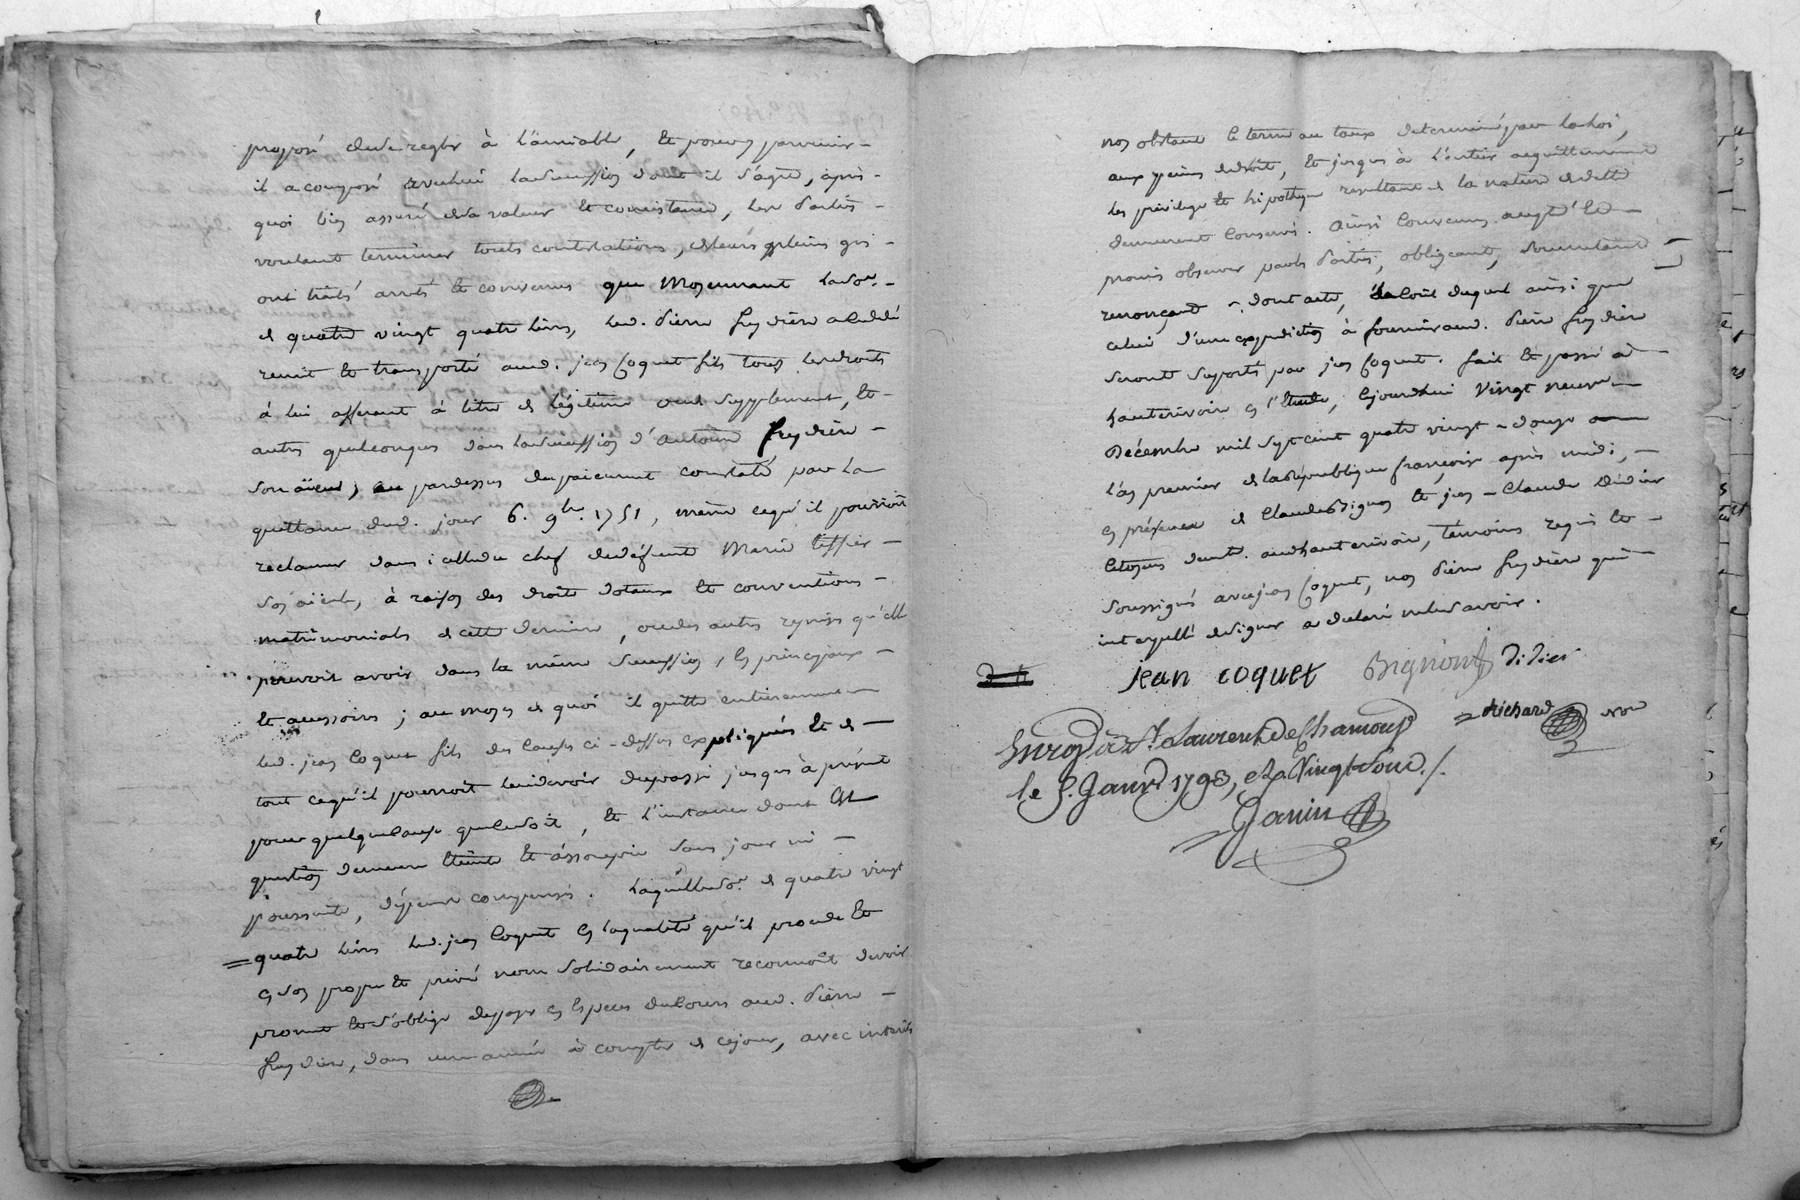 proposé de se regler à l'amiable, et pour y parvenir -
il a composé avec lui la succession dont il s'agit, après -
quoi bien assuré de sa valeur et consistance, les parties -
voulant terminer toutes contestations, de leurs pleins gré -
ont traité arrêté et convenus que moyennant la so.e -
de quatre vingt quatre livres, led. pierre freydière a cédé
remit et transporté aud. jean Coquet fils tous les droits
à lui afferant à titre de légitime ou de supplement, et -
autres quelconques dans la succession d'antoine freydière -
son aïeul, au pardessus du paiement constaté par la
quittance dud. jour 6. 9.bre 1751, même ce qu'il pourroit
reclamer dans icelle du chef de défunte Marie teffier -
son aïeule, à raison des droits dotaux et conventions -
matrimoniales de cette derniere, ou des autres reprises qu'elle
pouvoit avoir dans la même succession, en principaux -
et accessoires ; au moyen de quoi il quitte entierement
led. jean Coquet fils des causes ci-dessus expliquées et de -
tout ce qu'il pourroit lui devoir du passé jusques à présent
pour quelque cause que ce soit, et l'instance dont est
question demeure éteinte et assoupie sans jour ni -
poursuite, dépens compensés. laquelle so.e de quatre vingt
= quatre livres led. jean Coquet en la qualité qu'il procede et
en son propre et privé nom solidairement reconnoît devoir
promet et s'oblige de payer en especes de cours aud. pierre -
freydière, dans une année à compter de ce jour, avec interêts
non obstant le terme au taux determiné par la loi,
aux peines de droit, et jusques à l'entier acquittement
les privilege et hipotheque resultant de la nature de dette
demeurent conservés. Ainsi convenu accepté et -
promis observer par les parties, obligeant, soumettant
renonçant - dont acte, le coût duquel ainsi que
celui d'une expedition à fournir aud. pierre freydière
seront suportés par jean Coquet. fait et passé à -
hauterivoire en l'étude, cejourdhui vingt neuf -
Décembre mil sept cent quatre vingt - douze
l'an premier de la République françoise après midi, -
en présence de Claude Bignon et jean - Claude Didier
Citoyens aud. hauterivoire, temoins requis et -
soussignés avec jean Coquet, non pierre freydière qui
interpellé de signer a declaré ne le savoir.
jean coquet Bignon Didier
= Richard no.re
Enreg.é à S.t Laurent de Chamousset
le 5. Janv.r 1793, R. Vingt Sous ./.
Janin